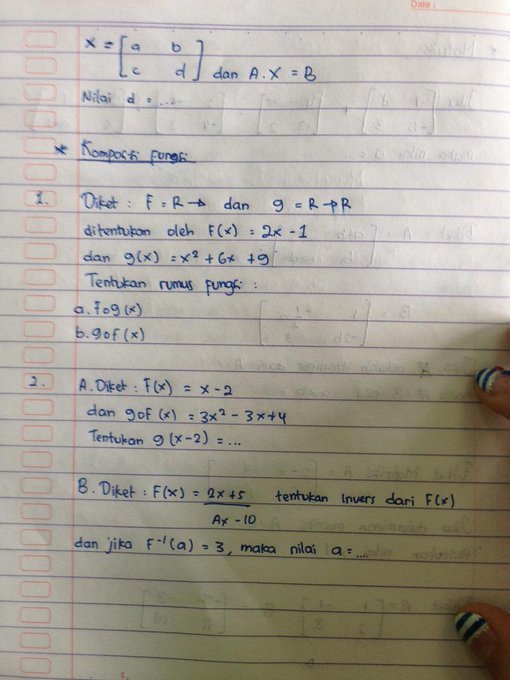 Date :
X = [a b
c d] dan A.X = B
Nilai d = ....
* Komposisi fungsi
1. Diket : F = R → dan g = R → R
ditentukan oleh F(x) = 2x - 1
dan g(x) = x² + 6x + 9
Tentukan rumus fungsi :
a. fog(x)
b. gof(x)
2. A. Diket : F(x) = x - 2
dan gof(x) = 3x² - 3x + 4
Tentukan g(x-2) = ...
B. Diket : F(x) = 2x + 5 tentukan Invers dari F(x)
Ax - 10
dan jika F⁻¹(a) = 3, maka nilai a = ....